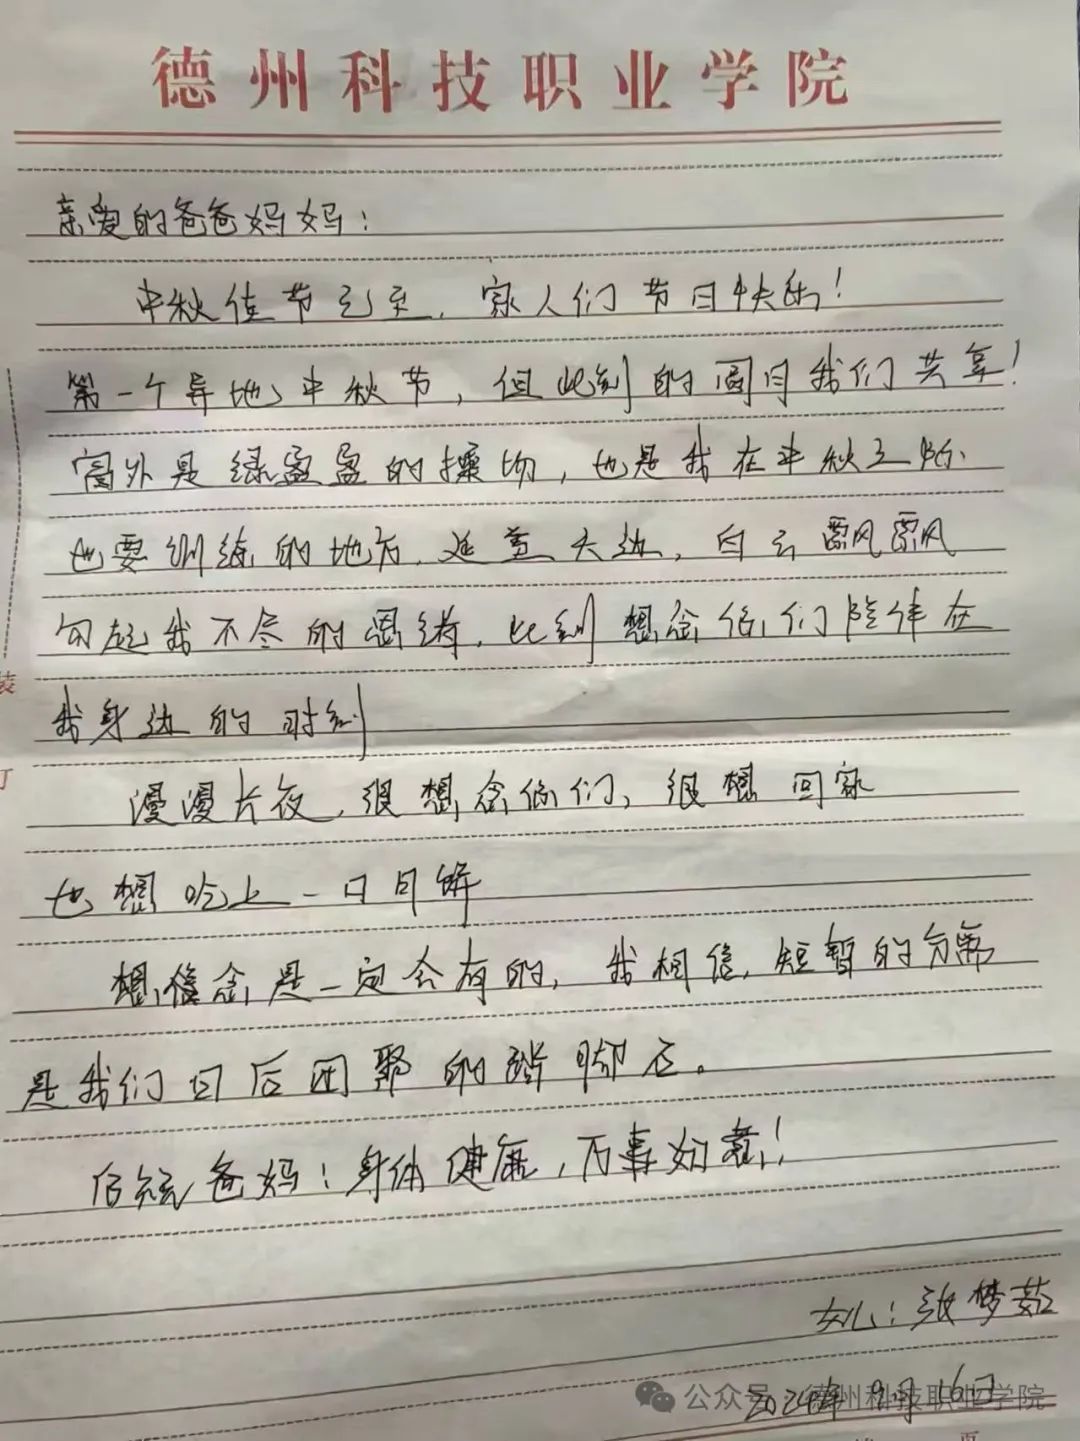 德州科技职业学院
亲爱的爸爸妈妈：
中秋佳节已至，家人们节日快乐！
第一个异地中秋节，但此刻的圆月我们共享！
窗外是绿盈盈的操场，也是我在中秋之际
也要训练的地方，遥望天边，白云飘飘
勾起我不尽的思绪，此刻想念你们陪伴在
我身边的时刻
漫漫长夜，很想念你们，很想回家
也想吃上一口月饼
想信念是一定会有的，我相信，短暂的分离
是我们日后团聚的踏脚石。
后祝爸妈：身体健康，万事如意！
女儿：张梦茹
2024年9月16日
公众号：德州科技职业学院
装
订